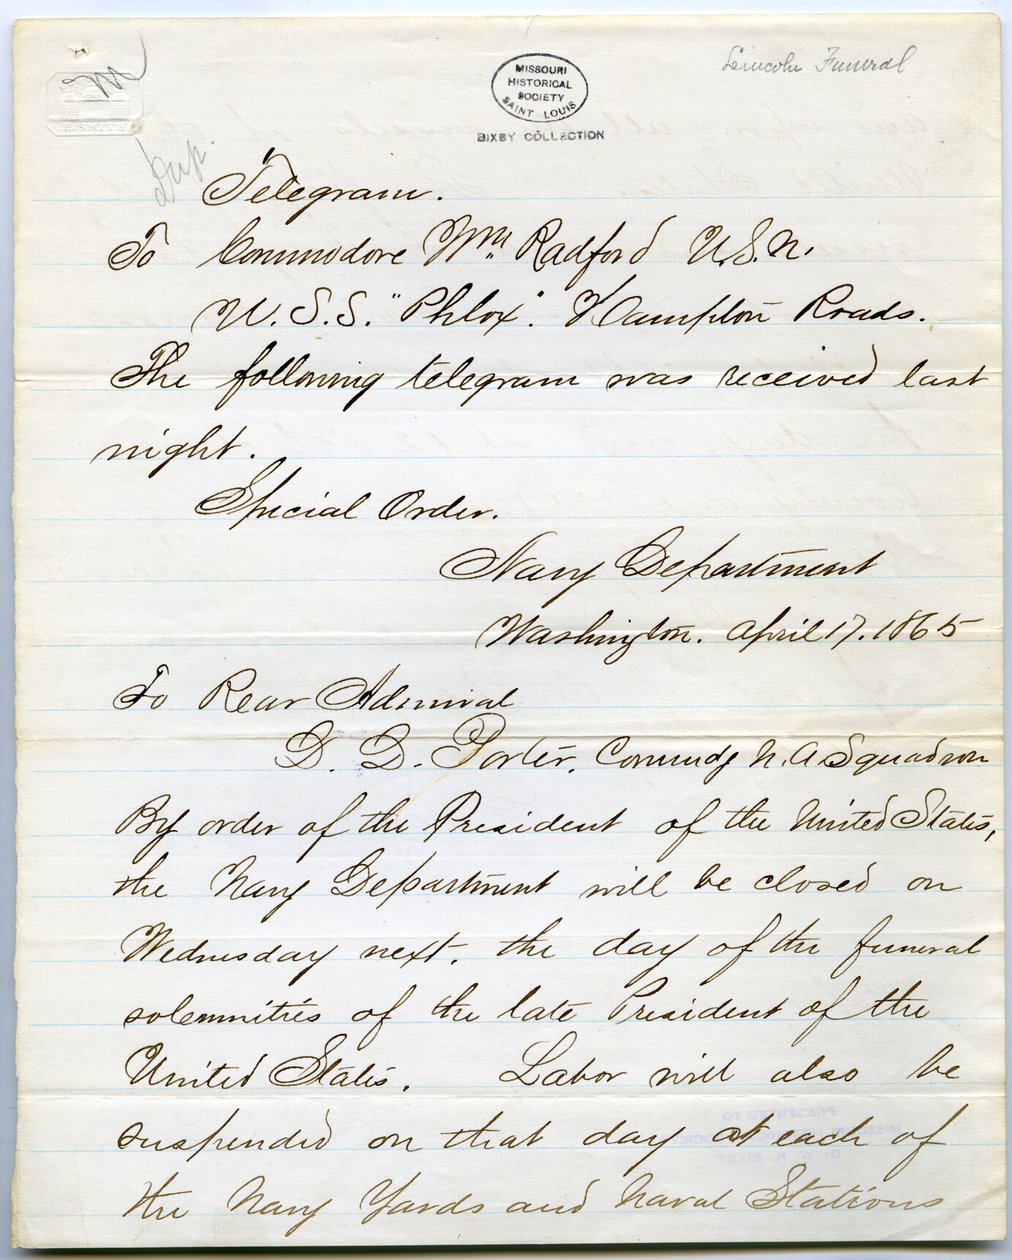 Lincoln Funeral
MISSOURI
HISTORICAL
SOCIETY
SAINT LOUIS
BIXBY COLLECTION
Dup.
Telegram.
To Commodore Wm. Radford U.S.N.
U.S.S. "Phlox". Hampton Roads.
The following telegram was received last
night.
Special Order.
Navy Department
Washington. April 17. 1865
To Rear Admiral
D. D. Porter, Commdg N. A Squadron
By order of the President of the United States,
the Navy Department will be closed on
Wednesday next, the day of the funeral
solemnities of the late President of the
United States. Labor will also be
suspended on that day at each of
the Navy Yards and Naval Stations